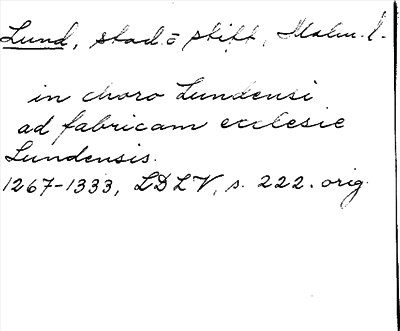 Lund, stad o stift, Malm. l.
in choro Lundensi
ad fabricam ecclesie
Lundensis.
1267-1333, LDLV, s. 222. orig.